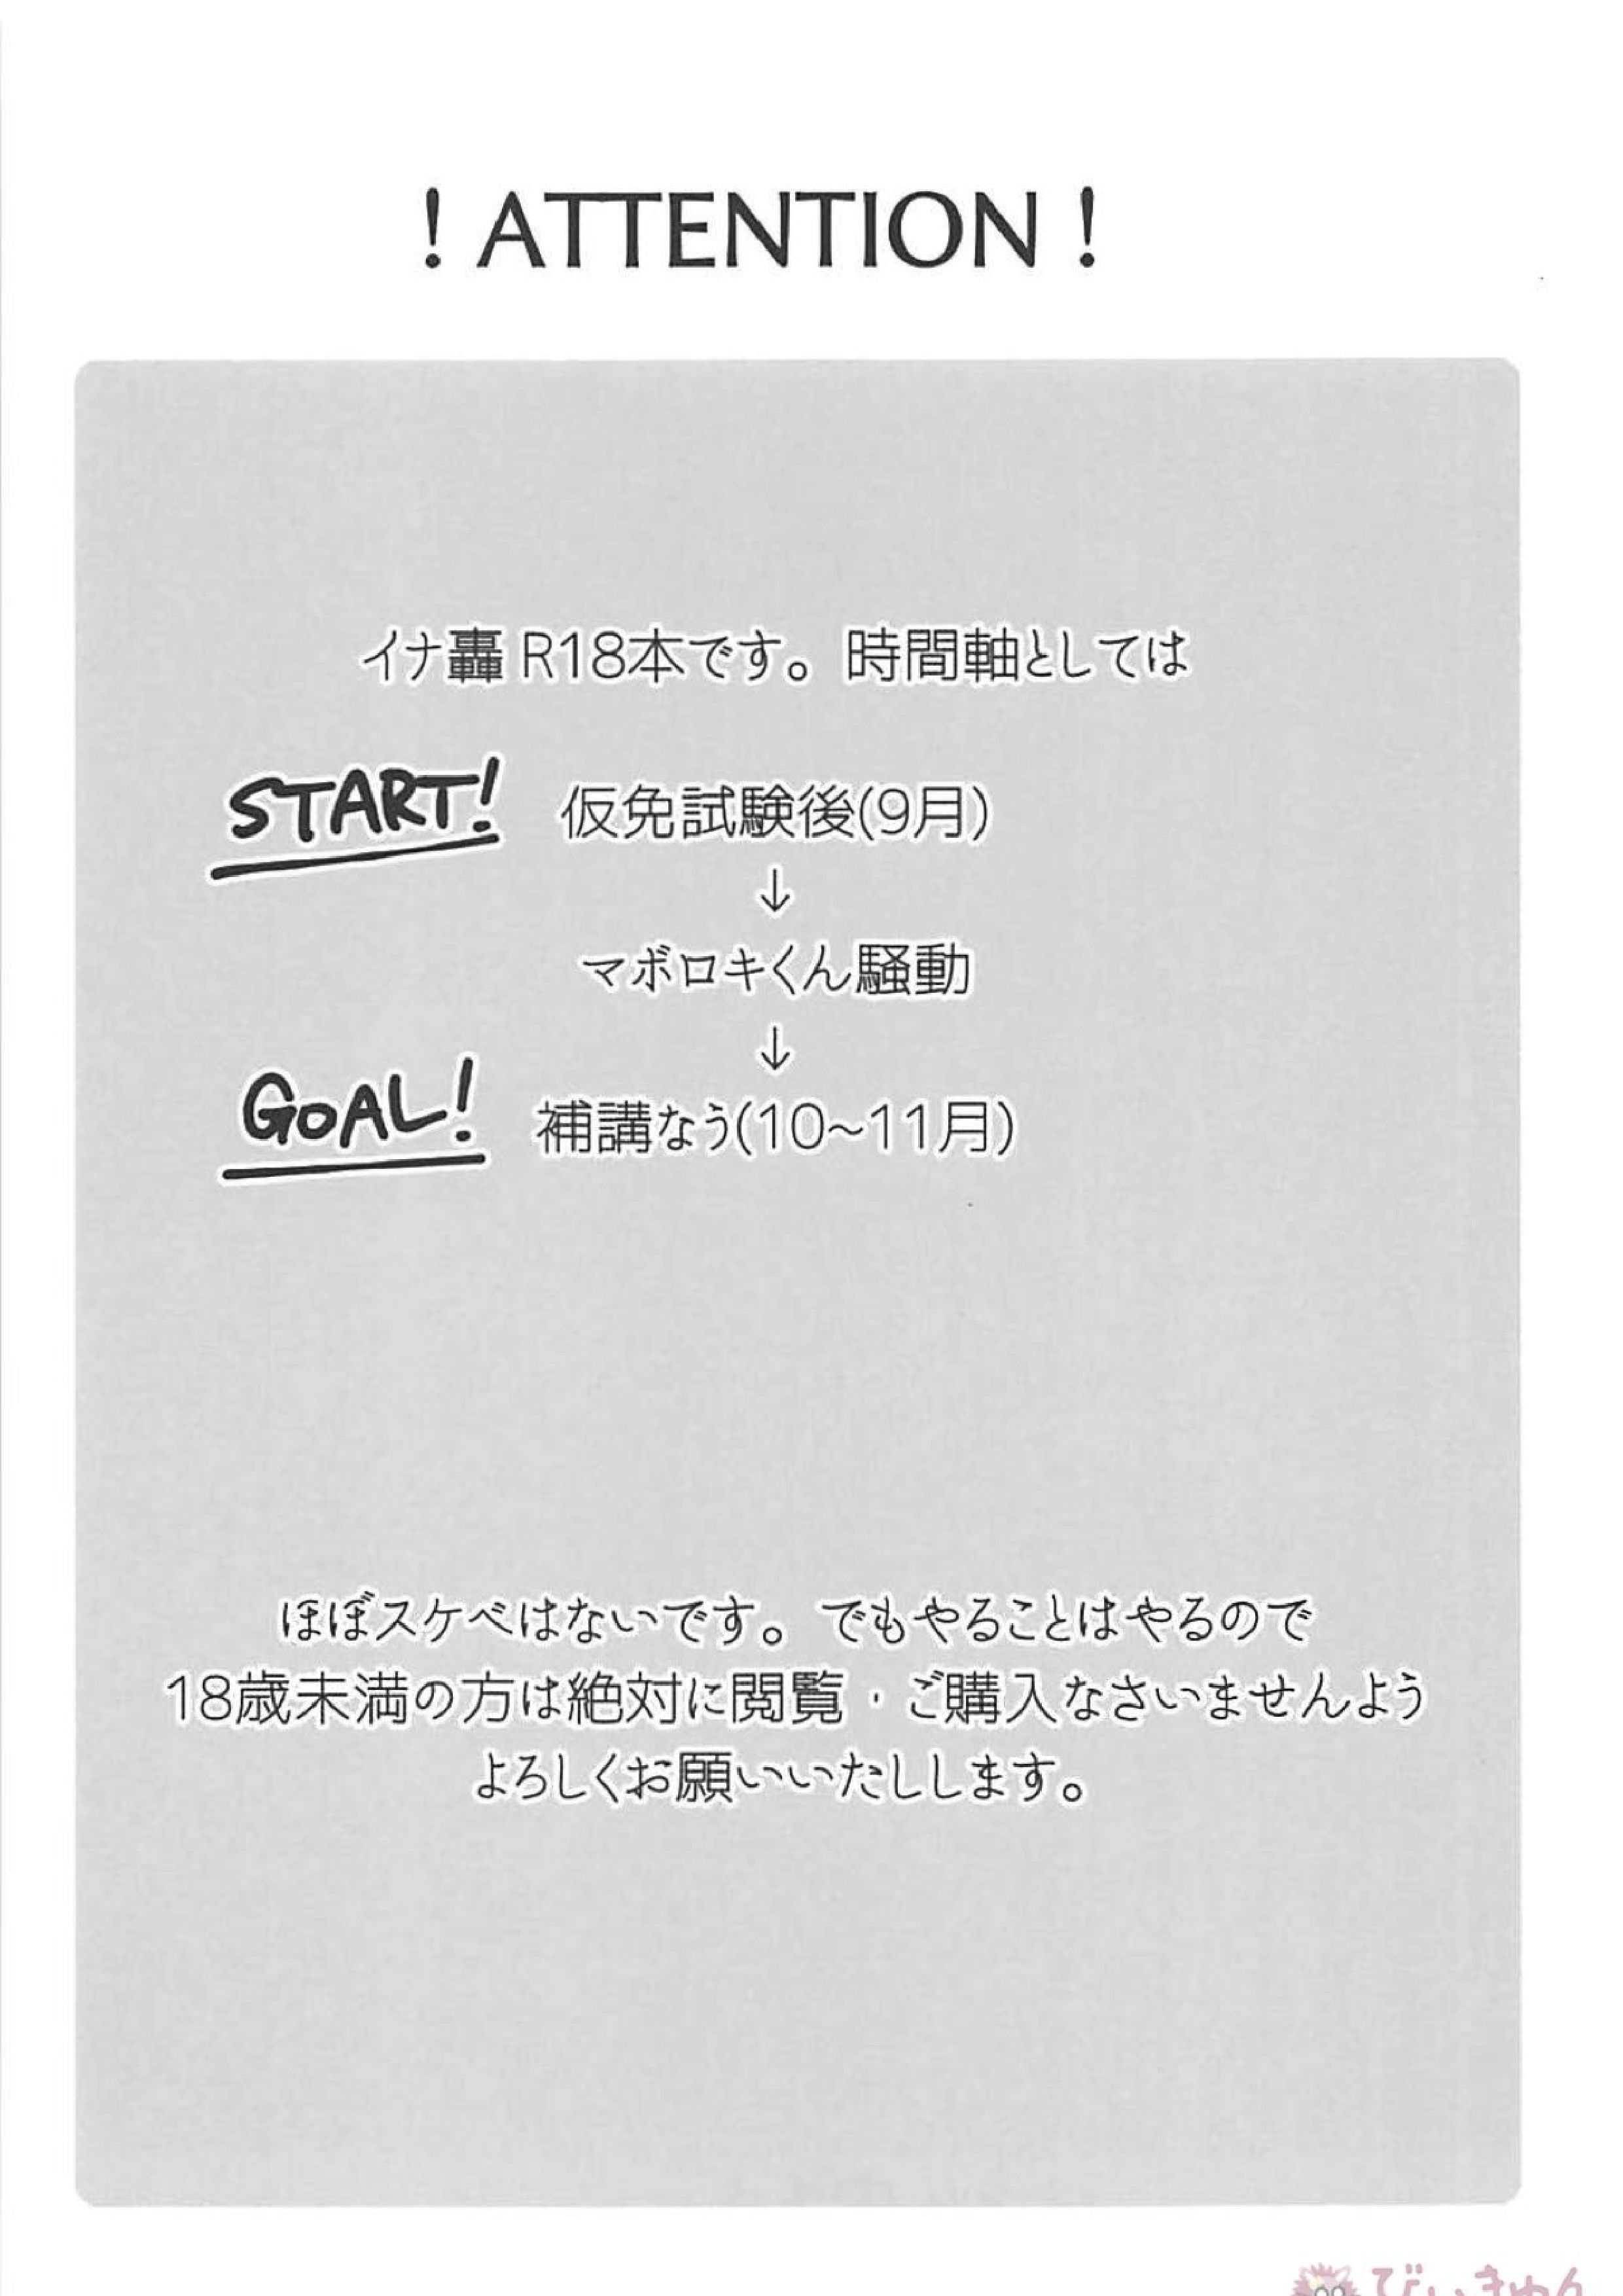 ! ATTENTION !
イナ轟 R18本です。時間軸としては
START! 仮免試験後(9月)
↓
マボロキくん騒動
↓
GOAL! 補講なう(10~11月)
ほぼスケベはないです。でもやることはやるので
18歳未満の方は絶対に閲覧・ご購入なさいませんよう
よろしくお願いいたしします。